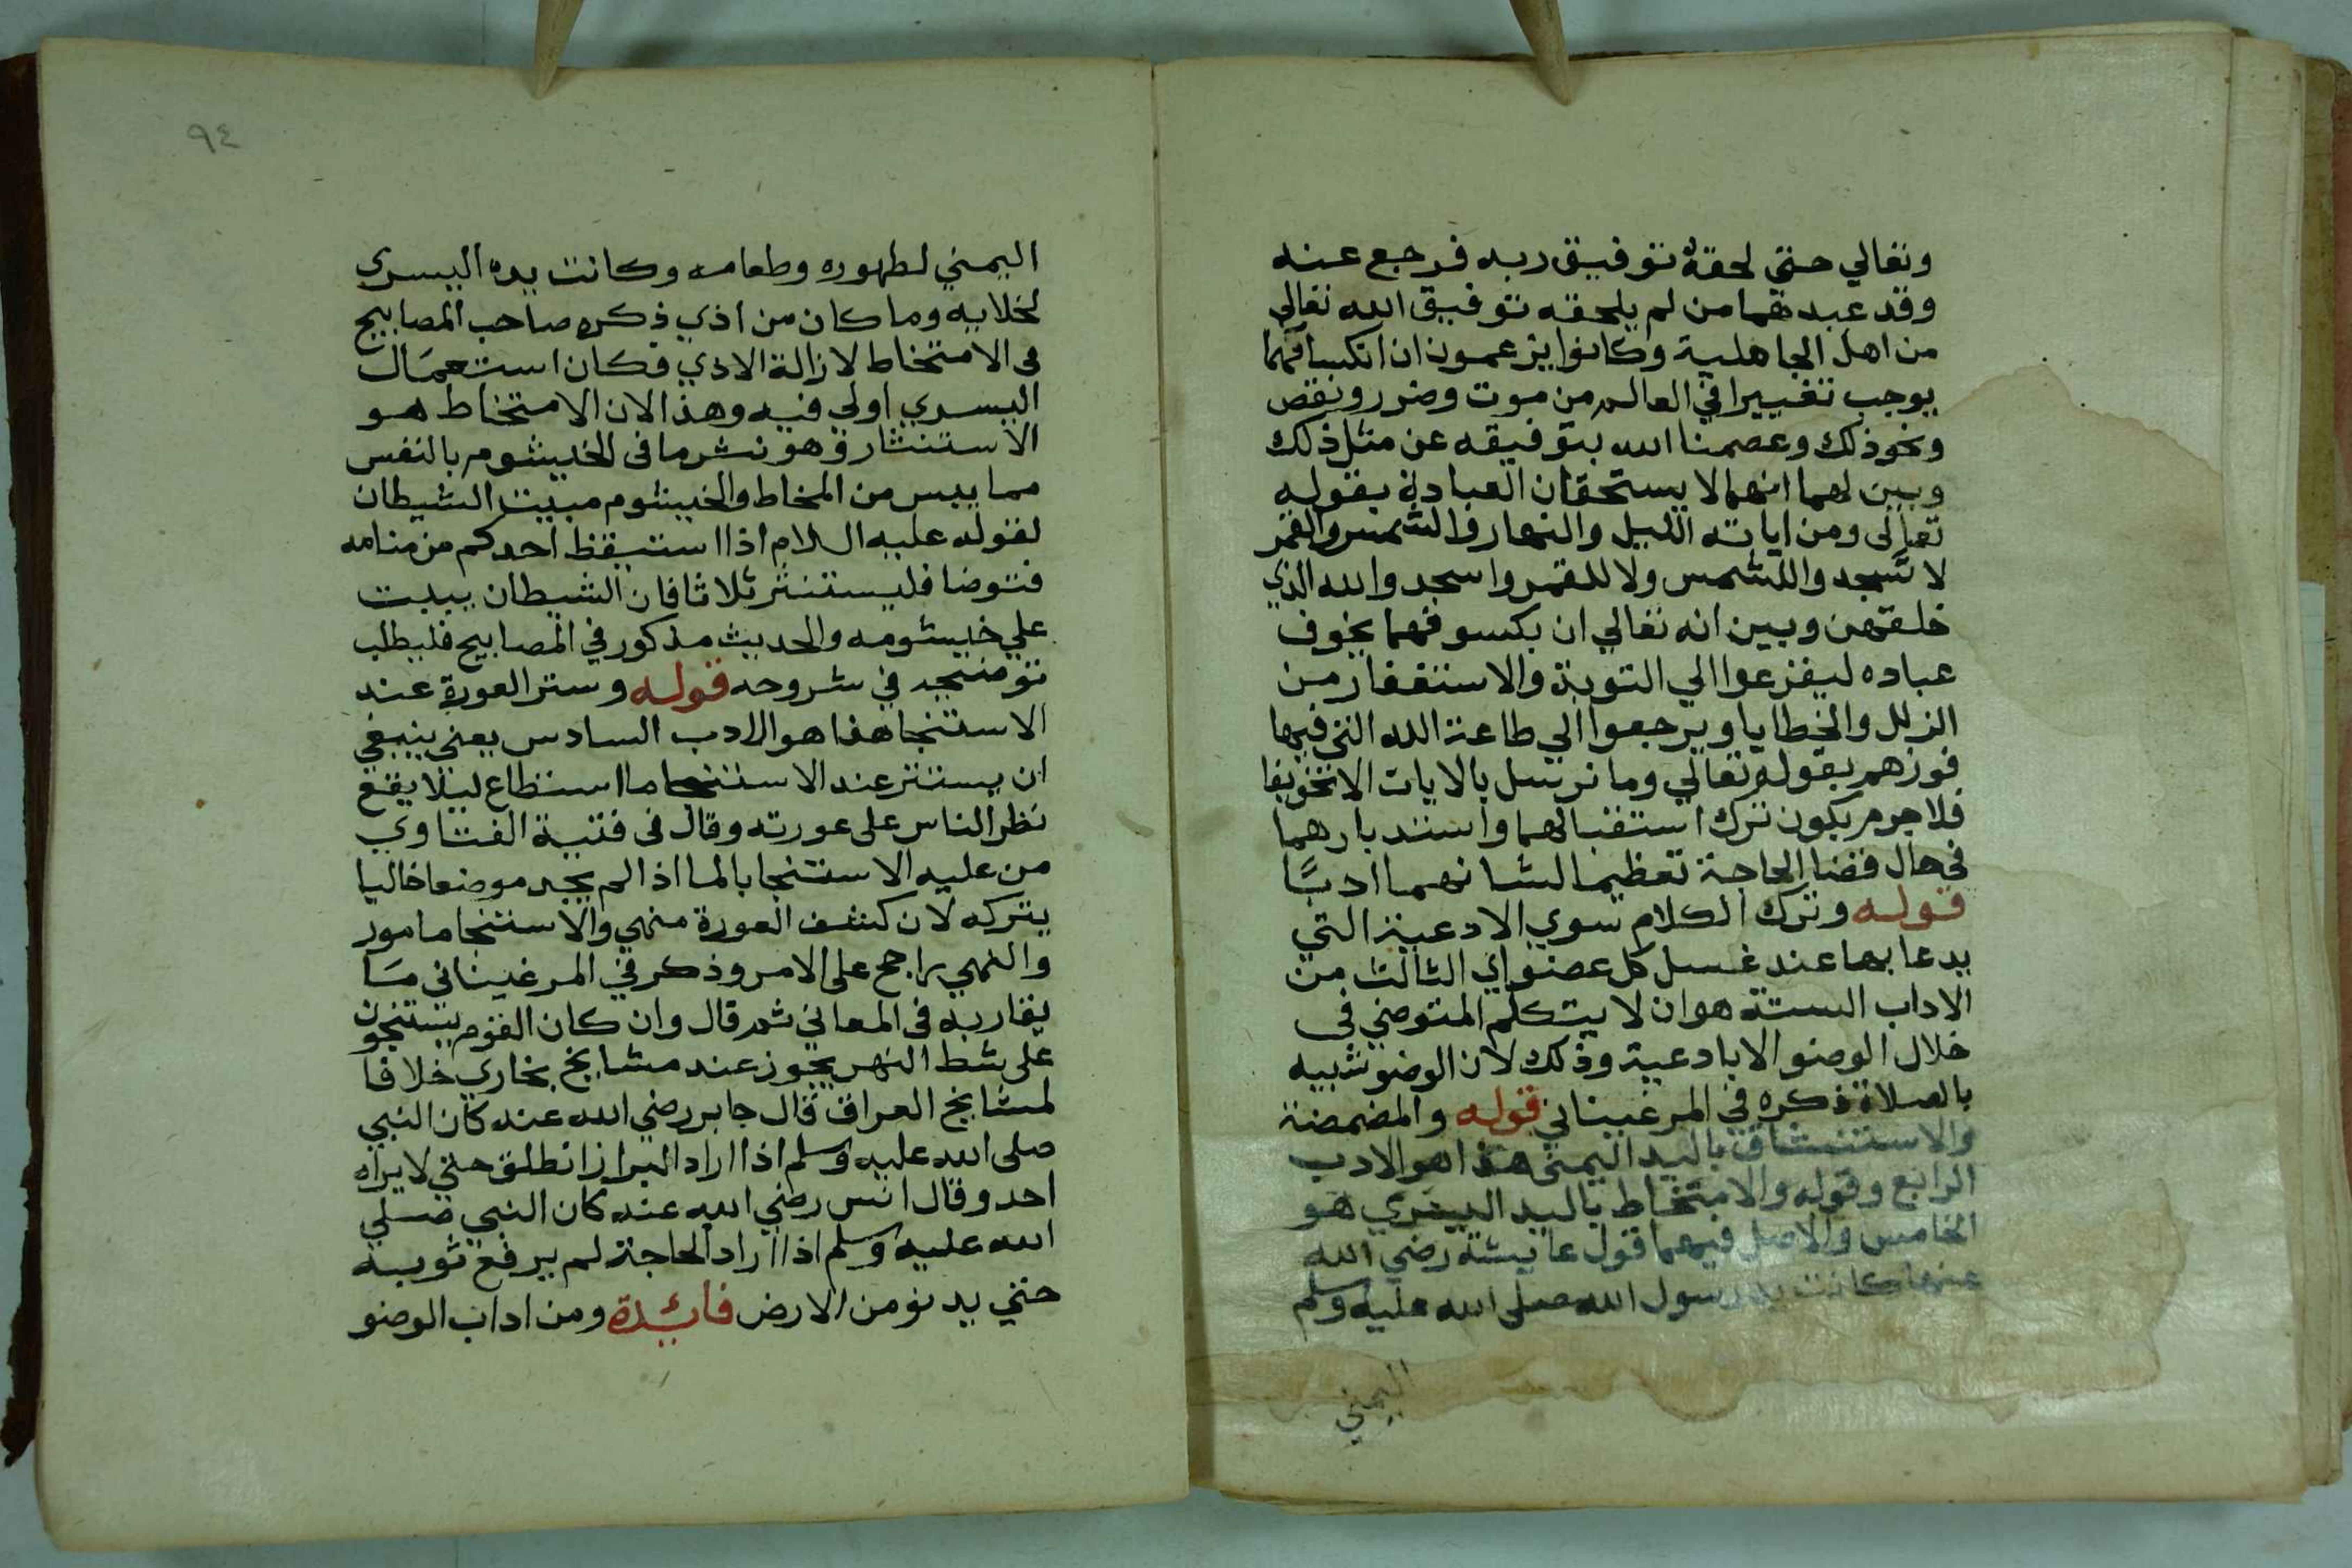 وتعالي حتي لحقه توفيق ربه فرجع عنه
وقد عبدهما من لم يلحقه توفيق الله تعالي
من اهل الجاهلية وكانوا يزعمون ان انكسافهما
يوجب تغييرا في العالم من موت وضرر ونقص
ونحو ذلك وعصمنا الله بتوفيقه عن مثل ذلك
وبين لهما انهما لا يستحقان العبادة بقوله
تعالى ومن اياته الليل والنهار والشمس والقمر
لا تسجدوا للشمس ولا للقمر واسجدوا لله الذي
خلقهن وبين انه تعالي ان بكسوفهما يخوف
عباده ليفزعوا الي التوبة والاستغفار من
الزلل والخطايا ويرجعوا الي طاعة الله التي فيها
فوزهم بقوله تعالي وما نرسل بالايات الا تخويفا
فلا جرم يكون ترك استقبالهما واستدبارهما
في حال قضا الحاجة تعظيما لشانهما ادبًا
قوله وترك الكلام سوي الادعية التي
يدعا بها عند غسل كل عضو اي الثالث من
الاداب الستة هو ان لا يتكلم المتوضي في
خلال الوضو الا بادعية وذلك لان الوضو شبيه
بالصلاة ذكره في المرغيناني قوله والمضمضة
والاستنشاق باليد اليمنى هذا هو الادب
الرابع وقوله والامتخاط باليد اليسري هو
الخامس والاصل فيهما قول عايشة رضي الله
عنها كانت يد رسول الله صلى الله عليه وسلم
اليمني
٩٤
اليمني لطهوره وطعامه وكانت يده اليسرى
لخلايه وما كان من اذي ذكره صاحب المصابيح
في الامتخاط لازالة الاذي فكان استعمال
اليسري اولي فيه وهذا لان الامتخاط هو
الاستنثار وهو نثر ما في الخيشوم بالنفس
مما يبس من المخاط والخيشوم مبيت الشيطان
لقوله عليه السلام اذا استيقظ احدكم من منامه
فتوضا فليستنثر ثلاثا فان الشيطان يبيت
علي خيشومه والحديث مذكور في المصابيح فليطلب
توضيحه في شروحه قوله وستر العورة عند
الاستنجا هذا هو الادب السادس يعني ينبغي
ان يستتر عند الاستنجا ما استطاع ليلا يقع
نظر الناس على عورته وقال في قنية الفتاوي
من عليه الاستنجا بالما اذا لم يجد موضعا خاليا
يتركه لان كشف العورة منهي والاستنجا مامور
والنهي راجح على الامر وذكر في المرغيناني مَا
يقاربه في المعاني ثم قال وان كان القوم يستنجون
على شط النهر يجوز عند مشايخ بخاري خلافا
لمشايخ العراق قال جابر رضي الله عنه كان النبي
صلى الله عليه وسلم اذا اراد البراز انطلق حتي لا يراه
احد وقال انس رضي الله عنه كان النبي صلي
الله عليه وسلم اذا اراد الحاجة لم يرفع ثوبه
حتي يدنو من الارض فائدة ومن اداب الوضو